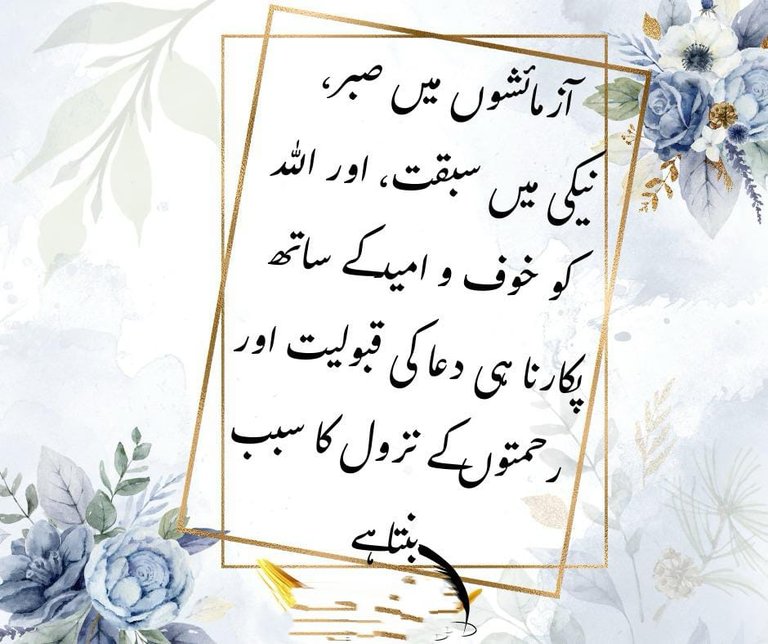 آزمائشوں میں صبر،
نیکی میں سبقت، اور اللہ
کو خوف و امیدکے ساتھ
پکارنا ہی دعا کی قبولیت اور
رحمتوں کے نزول کا سبب
بنتا ہے